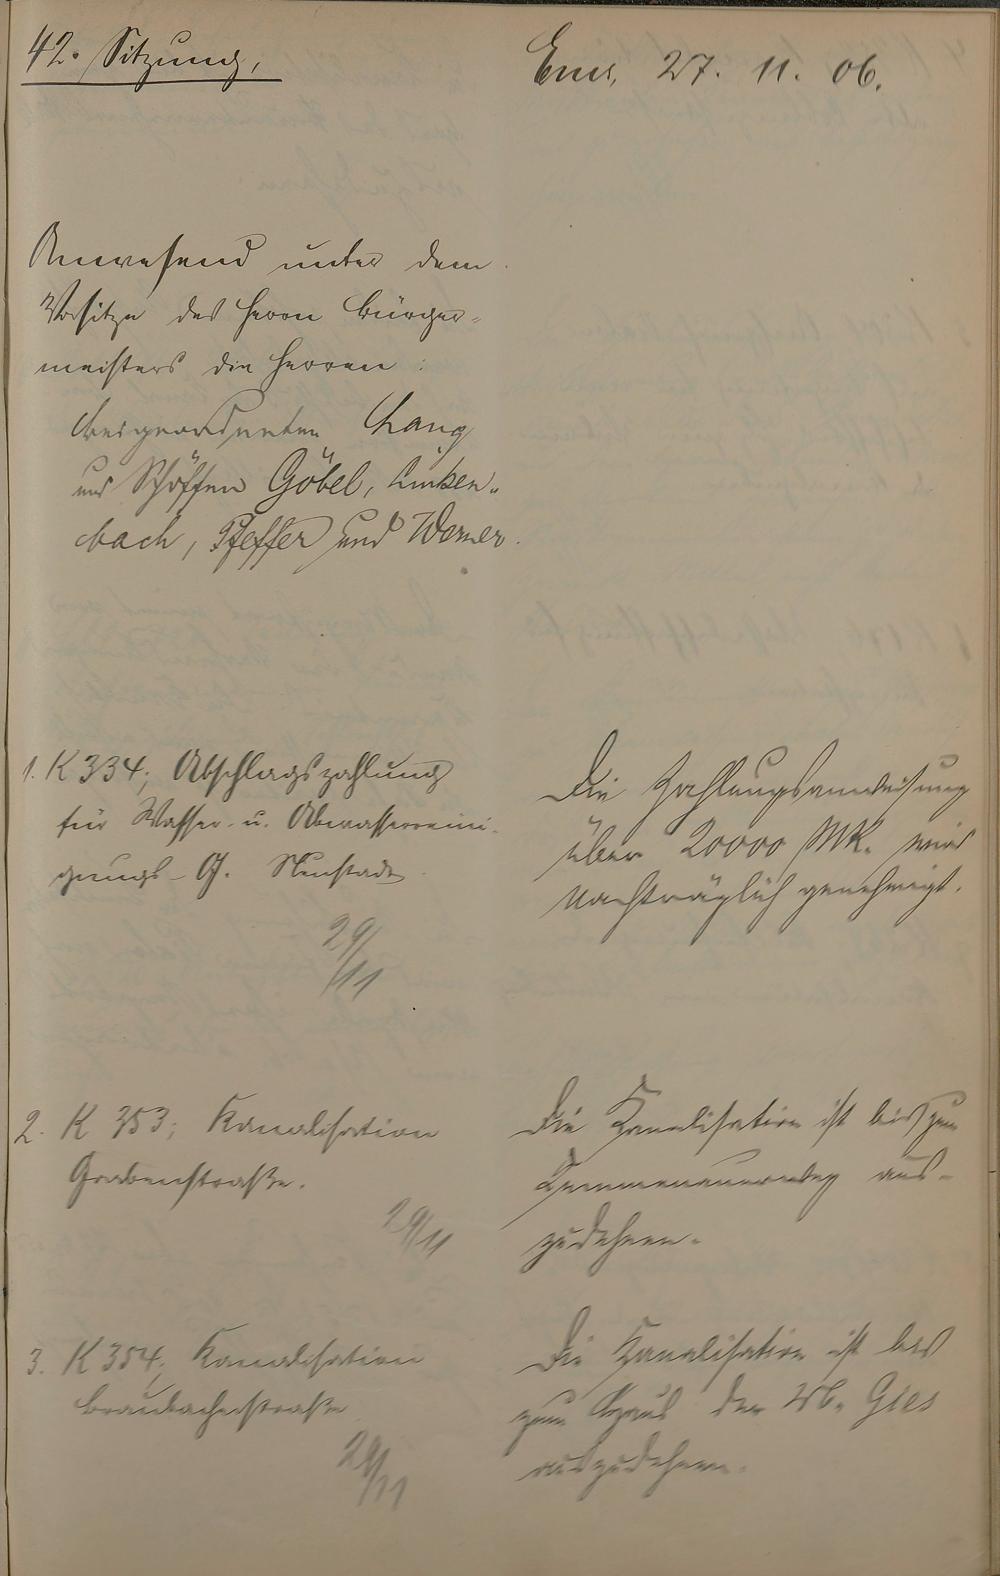 42. Sitzung,
Ems, 27. 11. 06.
Anwesend unter dem
Vorsitze des Herrn Bürger-
meisters die Herren:
Beigeordneten Lang
und Schöffen Göbel, Linken-
bach, Pfeffer und Werner.
1. K 334; Abschlagszahlung
für Wasser- u. Abwasserreini-
gungs-G. Neustadt
29/11
Die Zahlungsanweisung
über 20000 Mk. wird
nachträglich genehmigt.
2. K 353; Kanalisation
Grabenstraße.
29/11
Die Kanalisation ist bis zum
Kemmenauerweg aus-
zudehnen.
3. K 354; Kanalisation
Braubacherstraße
29/11
Die Kanalisation ist bis
zum Haus der Wb. Gies
auszudehnen.